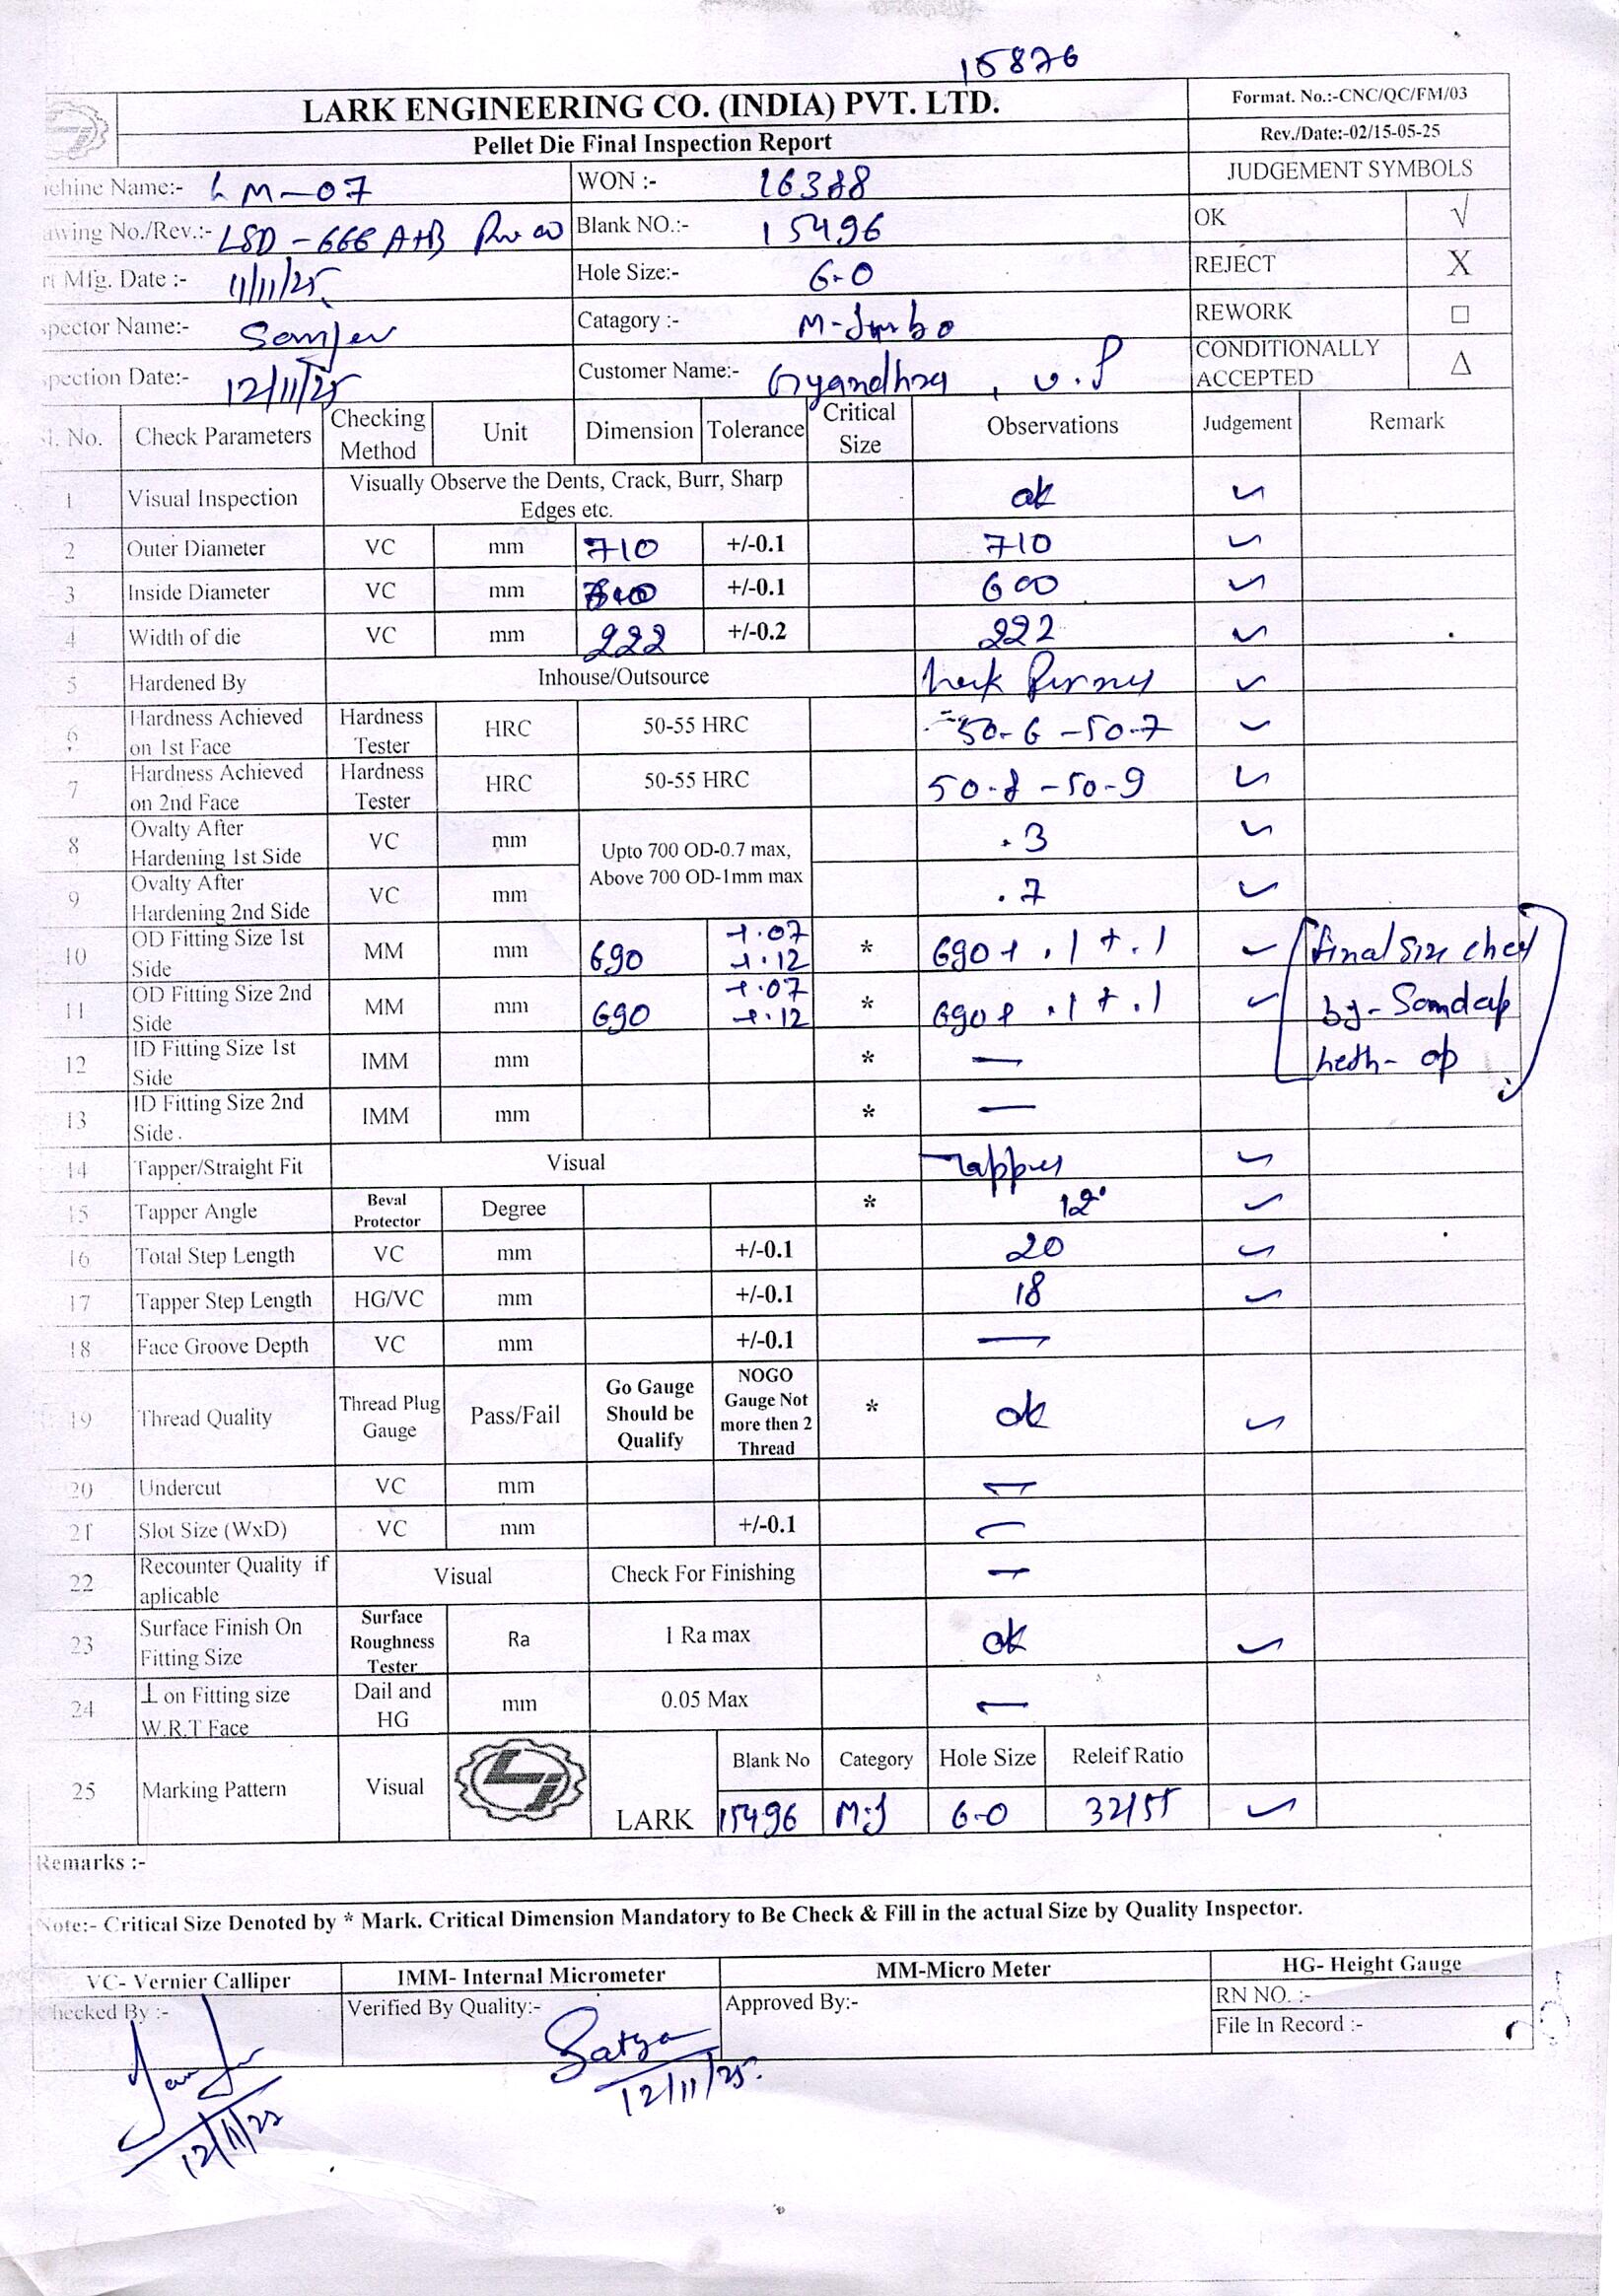 15876
LARK ENGINEERING CO. (INDIA) PVT. LTD.
Format. No.:-CNC/QC/FM/03
Pellet Die Final Inspection Report
Rev./Date:-02/15-05-25
chine Name:- LM-07 WON :- 16388 JUDGEMENT SYMBOLS
awing No./Rev.:- LSD-666 A+B Blank NO.:- 15496 OK √
rt Mfg. Date :- 11/11/25 Hole Size:- 6-0 REJECT X
spector Name:- Sanjev Catagory :- M-Jmbo REWORK □
spection Date:- 12/11/25 Customer Name:- , U.P CONDITIONALLY ACCEPTED Δ
Sl. No. Check Parameters Checking Method Unit Dimension Tolerance Critical Size Observations Judgement Remark
1 Visual Inspection Visually Observe the Dents, Crack, Burr, Sharp Edges etc. ok ✓
2 Outer Diameter VC mm 710 +/-0.1 710 ✓
3 Inside Diameter VC mm +/-0.1 600 ✓
4 Width of die VC mm 222 +/-0.2 222 ✓
5 Hardened By Inhouse/Outsource ✓
6 Hardness Achieved on 1st Face Hardness Tester HRC 50-55 HRC 50-6 -50-7 ✓
7 Hardness Achieved on 2nd Face Hardness Tester HRC 50-55 HRC 50-8 -50-9 ✓
8 Ovalty After Hardening 1st Side VC mm Upto 700 OD-0.7 max, Above 700 OD-1mm max .3 ✓
9 Ovalty After Hardening 2nd Side VC mm .7 ✓
10 OD Fitting Size 1st Side MM mm 690 +.07 +.12 * 690+ .1 +.1 ✓ final size
11 OD Fitting Size 2nd Side MM mm 690 +.07 +.12 * 690+ .1 +.1 ✓ by-
12 ID Fitting Size 1st Side IMM mm * — op
13 ID Fitting Size 2nd Side . IMM mm * —
14 Tapper/Straight Fit Visual Tapper ✓
15 Tapper Angle Beval Protector Degree * 12° ✓
16 Total Step Length VC mm +/-0.1 20 ✓
17 Tapper Step Length HG/VC mm +/-0.1 18 ✓
18 Face Groove Depth VC mm +/-0.1 —
19 Thread Quality Thread Plug Gauge Pass/Fail Go Gauge Should be Qualify NOGO Gauge Not more then 2 Thread * ok ✓
20 Undercut VC mm —
21 Slot Size (WxD) VC mm +/-0.1 —
22 Recounter Quality if aplicable Visual Check For Finishing —
23 Surface Finish On Fitting Size Surface Roughness Tester Ra 1 Ra max ok ✓
24 ⊥ on Fitting size W.R.T Face Dail and HG mm 0.05 Max —
25 Marking Pattern Visual LARK Blank No Category Hole Size Releif Ratio
15496 M:J 6-0 32/55 ✓
Remarks :-
Note:- Critical Size Denoted by * Mark. Critical Dimension Mandatory to Be Check & Fill in the actual Size by Quality Inspector.
VC- Vernier Calliper IMM- Internal Micrometer MM-Micro Meter HG- Height Gauge
Checked By :- Verified By Quality:- Approved By:- RN NO. :-
File In Record :-
Satya
12/11/25.
12/11/25